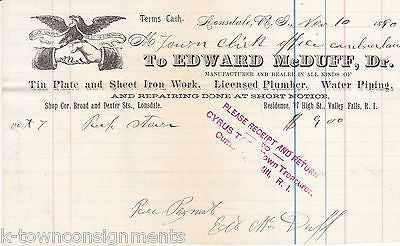 Terms Cash.
Lonsdale, R. I., Nov 10 1890
Town Clerk office Cumberland
To EDWARD McDUFF, Dr.
MANUFACTURER AND DEALER IN ALL KINDS OF
Tin Plate and Sheet Iron Work, Licensed Plumber. Water Piping,
AND REPAIRING DONE AT SHORT NOTICE.
Shop Cor. Broad and Dexter Sts., Lonsdale.
Residence, 17 High St., Valley Falls, R. I.
7
$ 9 00
PLEASE RECEIPT AND RETURN
CYRUS Town Treasurer,
R. I.
Rec Payment
Ed McDuff
k-townconsignments